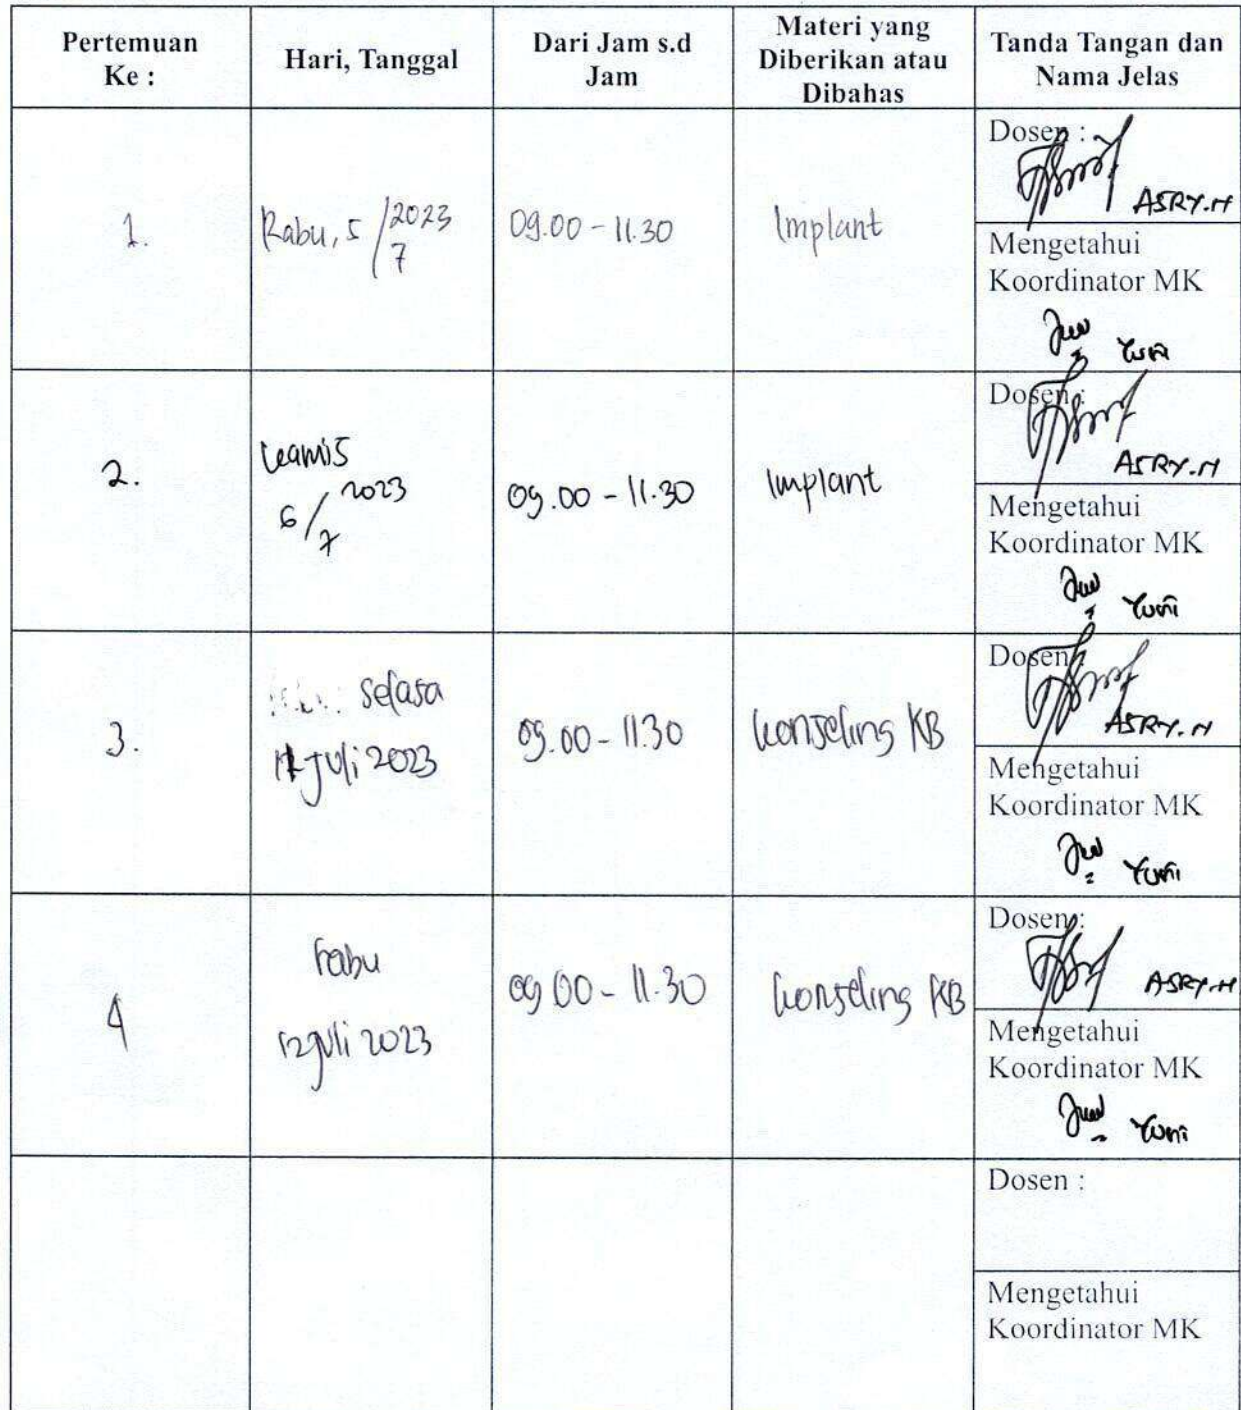 Pertemuan
Ke :
Hari, Tanggal
Dari Jam s.d
Jam
Materi yang
Diberikan atau
Dibahas
Tanda Tangan dan
Nama Jelas
1.
Rabu, 5/7 2023
09.00 - 11.30
Implant
Dosen :
ASRY.M
Mengetahui
Koordinator MK
Yuni
2.
Kamis
6/7 2023
09.00 - 11.30
Implant
Dosen :
ASRY.M
Mengetahui
Koordinator MK
Yuni
3.
Selasa
Juli 2023
09.00 - 11.30
Konseling KB
Dosen :
ASRY.M
Mengetahui
Koordinator MK
Yuni
4
Rabu
12 Juli 2023
09.00 - 11.30
Konseling KB
Dosen :
ASRY.M
Mengetahui
Koordinator MK
Yuni
Dosen :
Mengetahui
Koordinator MK